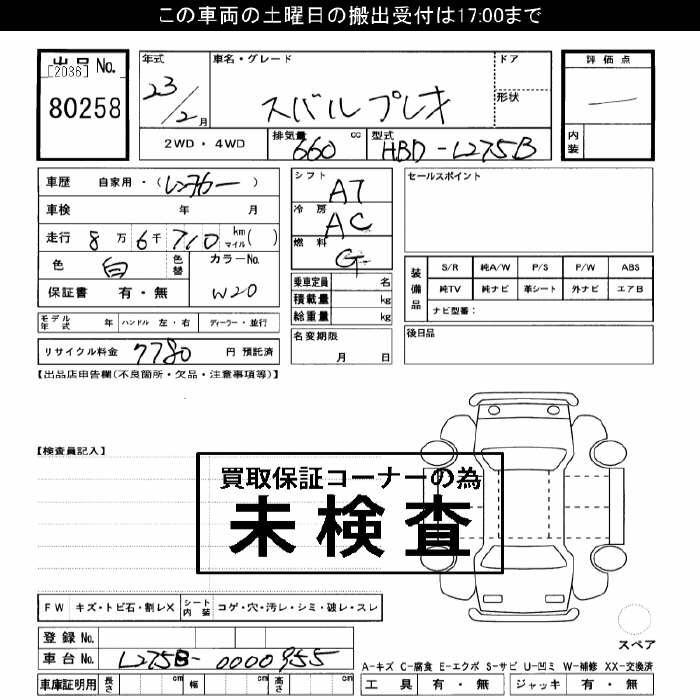 この車両の土曜日の搬出受付は17:00まで
出品 No.
[2036]
80258
年式
23/2月
車名・グレード
スバルプレオ
ドア
形状
評価点
内装
2WD・4WD
排気量 660 cc
型式 HBD-L275B
車歴 自家用・(レンタカー)
車検 年 月
走行 8万6千710 km マイル( )
色 白 色替 カラーNo. W20
保証書 有・無
シフト AT
冷房 AC
燃料 G
乗車定員 名
積載量 kg
総重量 kg
セールスポイント
装備品
S/R 純A/W P/S P/W ABS
純TV 純ナビ 革シート 外ナビ エアB
ナビ型番:
モデル年式 年 ハンドル 左・右 ディーラー・並行
リサイクル料金 7780 円 預託済
名変期限 月 日
後日品
【出品店申告欄(不良箇所・欠品・注意事項等)】
【検査員記入】
買取保証コーナーの為
未検査
FW キズ・トビ石・割レX シート内装 コゲ・穴・汚レ・シミ・破レ・スレ
登録 No.
車台 No. L275B-0000955
車庫証明用 長さ cm 幅 cm 高さ cm
スペア
A-キズ C-腐食 E-エクボ S-サビ U-凹ミ W-補修 XX-交換済
工具 有・無 ジャッキ 有・無